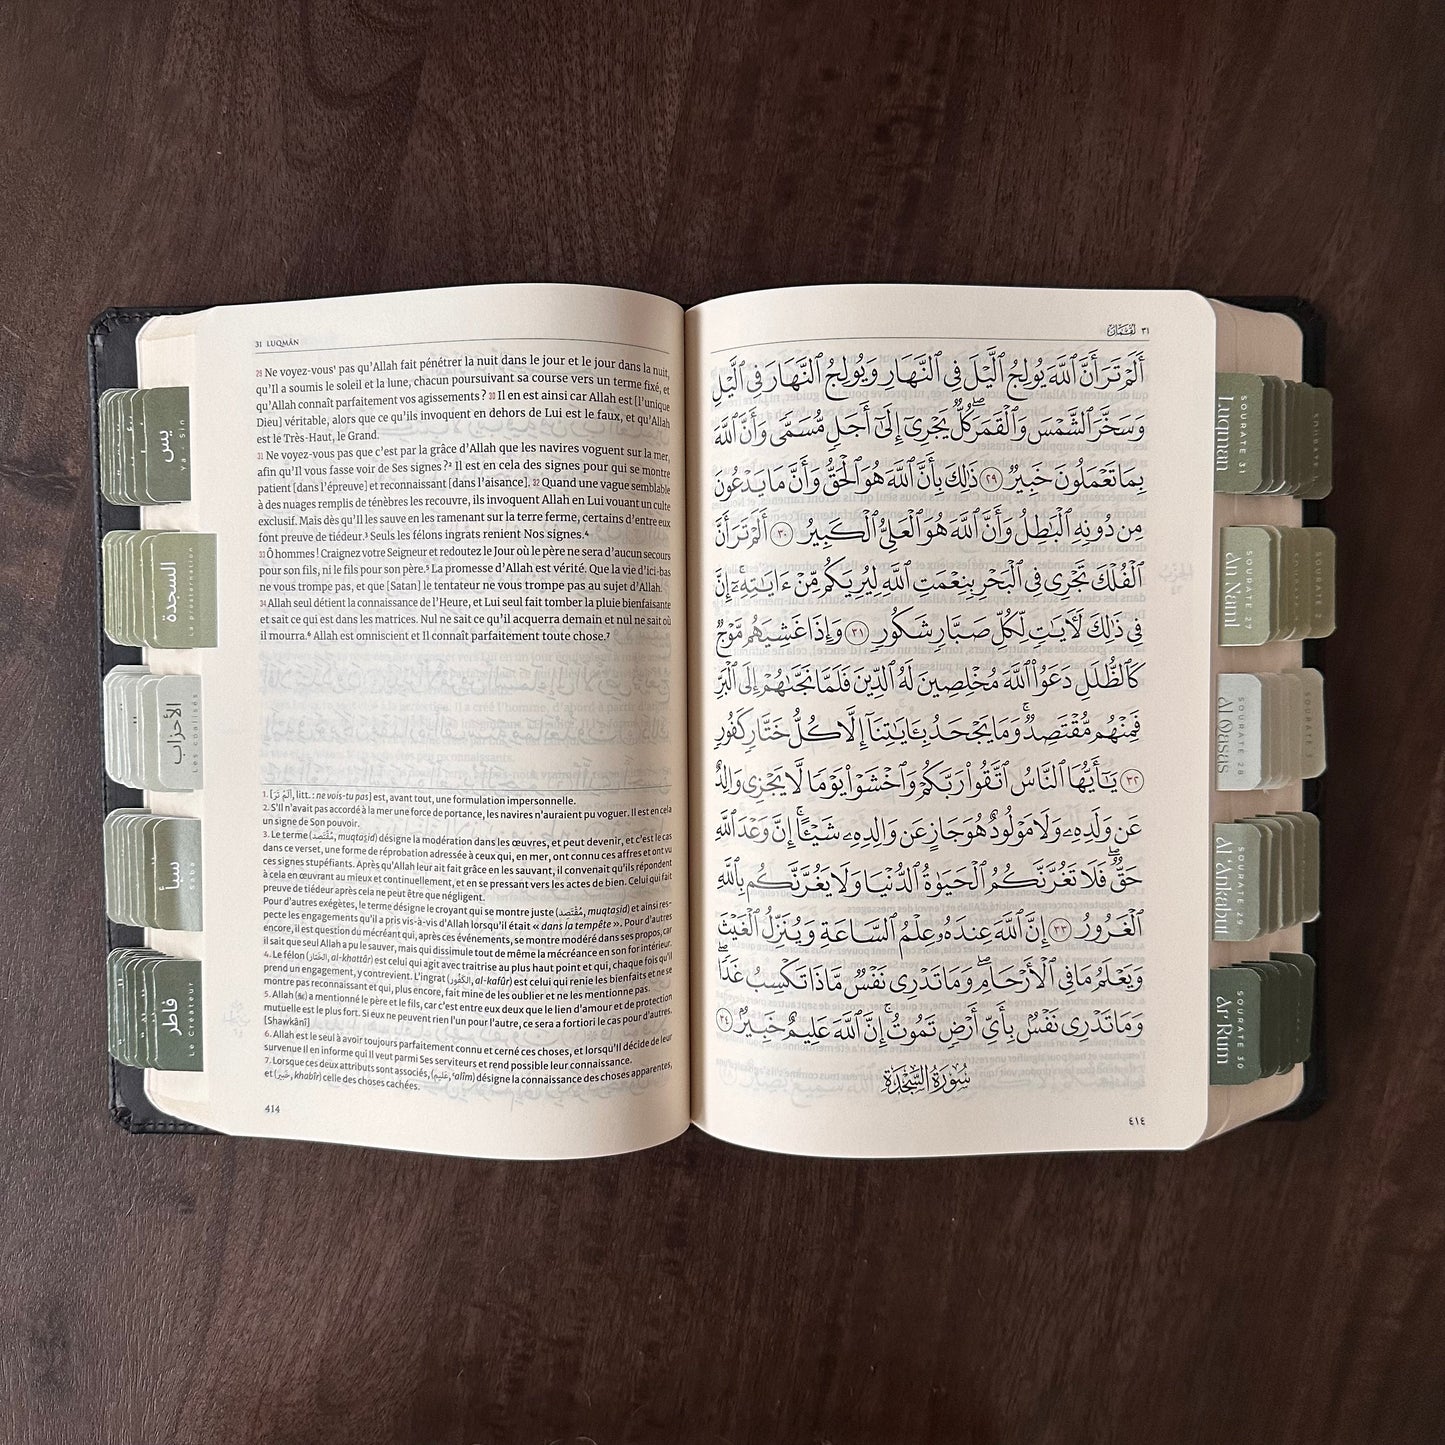 31 LUQMÂN
29 Ne voyez-vous¹ pas qu’Allah fait pénétrer la nuit dans le jour et le jour dans la nuit,
qu’Il a soumis le soleil et la lune, chacun poursuivant sa course vers un terme fixé, et
qu’Allah connaît parfaitement vos agissements ? 30 Il en est ainsi car Allah est [l’unique
Dieu] véritable, alors que ce qu’ils invoquent en dehors de Lui est le faux, et qu’Allah
est le Très-Haut, le Grand.
31 Ne voyez-vous pas que c’est par la grâce d’Allah que les navires voguent sur la mer,
afin qu’Il vous fasse voir de Ses signes ?² Il est en cela des signes pour qui se montre
patient [dans l’épreuve] et reconnaissant [dans l’aisance]. 32 Quand une vague semblable
à des nuages remplis de ténèbres les recouvre, ils invoquent Allah en Lui vouant un culte
exclusif. Mais dès qu’Il les sauve en les ramenant sur la terre ferme, certains d’entre eux
font preuve de tiédeur.³ Seuls les félons ingrats renient Nos signes.⁴
33 Ô hommes ! Craignez votre Seigneur et redoutez le Jour où le père ne sera d’aucun secours
pour son fils, ni le fils pour son père.⁵ La promesse d’Allah est vérité. Que la vie d’ici-bas
ne vous trompe pas, et que [Satan] le tentateur ne vous trompe pas au sujet d’Allah.
34 Allah seul détient la connaissance de l’Heure, et Lui seul fait tomber la pluie bienfaisante
et sait ce qui est dans les matrices. Nul ne sait ce qu’il acquerra demain et nul ne sait où
il mourra.⁶ Allah est omniscient et Il connaît parfaitement toute chose.⁷
1. [أَلَمْ تَرَ, litt. : ne vois-tu pas] est, avant tout, une formulation impersonnelle.
2. S’Il n’avait pas accordé à la mer une force de portance, les navires n’auraient pu voguer. Il est en cela
un signe de Son pouvoir.
3. Le terme (مُقْتَصِد, muqtaṣid) désigne la modération dans les œuvres, et peut devenir, et c’est le cas
dans ce verset, une forme de réprobation adressée à ceux qui, en mer, ont connu ces affres et ont vu
ces signes stupéfiants. Après qu’Allah leur ait fait grâce en les sauvant, il convenait qu’ils répondent
à cela en œuvrant au mieux et continuellement, et en se pressant vers les actes de bien. Celui qui fait
preuve de tiédeur après cela ne peut être que négligent.
Pour d’autres exégètes, le terme désigne le croyant qui se montre juste (مُقْتَصِد, muqtaṣid) et ainsi res-
pecte les engagements qu’il a pris vis-à-vis d’Allah lorsqu’il était « dans la tempête ». Pour d’autres
encore, il est question du mécréant qui, après ces événements, se montre modéré dans ses propos, car
il sait que seul Allah a pu le sauver, mais qui dissimule tout de même la mécréance en son for intérieur.
4. Le félon (الخَتَّار, al-khattâr) est celui qui agit avec traîtrise au plus haut point et qui, chaque fois qu’il
prend un engagement, y contrevient. L’ingrat (الكَفُور, al-kafûr) est celui qui renie les bienfaits et ne se
montre pas reconnaissant et qui, plus encore, fait mine de les oublier et ne les mentionne pas.
5. Allah (ﷻ) a mentionné le père et le fils, car c’est entre eux deux que le lien d’amour et de protection
mutuelle est le plus fort. Si eux ne peuvent rien l’un pour l’autre, ce sera a fortiori le cas pour d’autres.
[Shawkânî]
6. Allah est le seul à avoir toujours parfaitement connu et cerné ces choses, et lorsqu’Il décide de leur
survenue Il en informe qui Il veut parmi Ses serviteurs et rend possible leur connaissance.
7. Lorsque ces deux attributs sont associés, (عَلِيم, ‘alîm) désigne la connaissance des choses apparentes,
et (خَبِير, khabîr) celle des choses cachées.
414
٣١ لُقْمَان
أَلَمْ تَرَ أَنَّ ٱللَّهَ يُولِجُ ٱلَّيْلَ فِى ٱلنَّهَارِ وَيُولِجُ ٱلنَّهَارَ فِى ٱلَّيْلِ
وَسَخَّرَ ٱلشَّمْسَ وَٱلْقَمَرَ كُلٌّ يَجْرِىٓ إِلَىٰٓ أَجَلٍ مُّسَمًّى وَأَنَّ ٱللَّهَ
بِمَا تَعْمَلُونَ خَبِيرٌ ٢٩ ذَٰلِكَ بِأَنَّ ٱللَّهَ هُوَ ٱلْحَقُّ وَأَنَّ مَا يَدْعُونَ
مِن دُونِهِ ٱلْبَٰطِلُ وَأَنَّ ٱللَّهَ هُوَ ٱلْعَلِىُّ ٱلْكَبِيرُ ٣٠ أَلَمْ تَرَ أَنَّ
ٱلْفُلْكَ تَجْرِى فِى ٱلْبَحْرِ بِنِعْمَتِ ٱللَّهِ لِيُرِيَكُم مِّنْ ءَايَٰتِهِۦٓ ۚ إِنَّ
فِى ذَٰلِكَ لَءَايَٰتٍ لِّكُلِّ صَبَّارٍ شَكُورٍ ٣١ وَإِذَا غَشِيَهُم مَّوْجٌ
كَٱلظُّلَلِ دَعَوُا۟ ٱللَّهَ مُخْلِصِينَ لَهُ ٱلدِّينَ فَلَمَّا نَجَّىٰهُمْ إِلَى ٱلْبَرِّ
فَمِنْهُم مُّقْتَصِدٌ ۚ وَمَا يَجْحَدُ بِـَٔايَٰتِنَآ إِلَّا كُلُّ خَتَّارٍ كَفُورٍ
٣٢ يَٰٓأَيُّهَا ٱلنَّاسُ ٱتَّقُوا۟ رَبَّكُمْ وَٱخْشَوْا۟ يَوْمًا لَّا يَجْزِى وَالِدٌ
عَن وَلَدِهِۦ وَلَا مَوْلُودٌ هُوَ جَازٍ عَن وَالِدِهِۦ شَيْـًٔا ۚ إِنَّ وَعْدَ ٱللَّهِ
حَقٌّ ۖ فَلَا تَغُرَّنَّكُمُ ٱلْحَيَوٰةُ ٱلدُّنْيَا وَلَا يَغُرَّنَّكُم بِٱللَّهِ
ٱلْغَرُورُ ٣٣ إِنَّ ٱللَّهَ عِندَهُۥ عِلْمُ ٱلسَّاعَةِ وَيُنَزِّلُ ٱلْغَيْثَ
وَيَعْلَمُ مَا فِى ٱلْأَرْحَامِ ۖ وَمَا تَدْرِى نَفْسٌ مَّاذَا تَكْسِبُ غَدًا ۖ
وَمَا تَدْرِى نَفْسٌۢ بِأَىِّ أَرْضٍ تَمُوتُ ۚ إِنَّ ٱللَّهَ عَلِيمٌ خَبِيرٌۢ ٣٤
سُورَةُ السَّجْدَةِ
٤١٤
يس
Ya - Sin
السجدة
La prosternation
الأحزاب
Les coalisés
سبأ
Saba
فاطر
Le Créateur
SOURATE 31
Luqman
SOURATE 27
An Naml
SOURATE 28
Al Qasas
SOURATE 29
Al 'Ankabut
SOURATE 30
Ar Rum